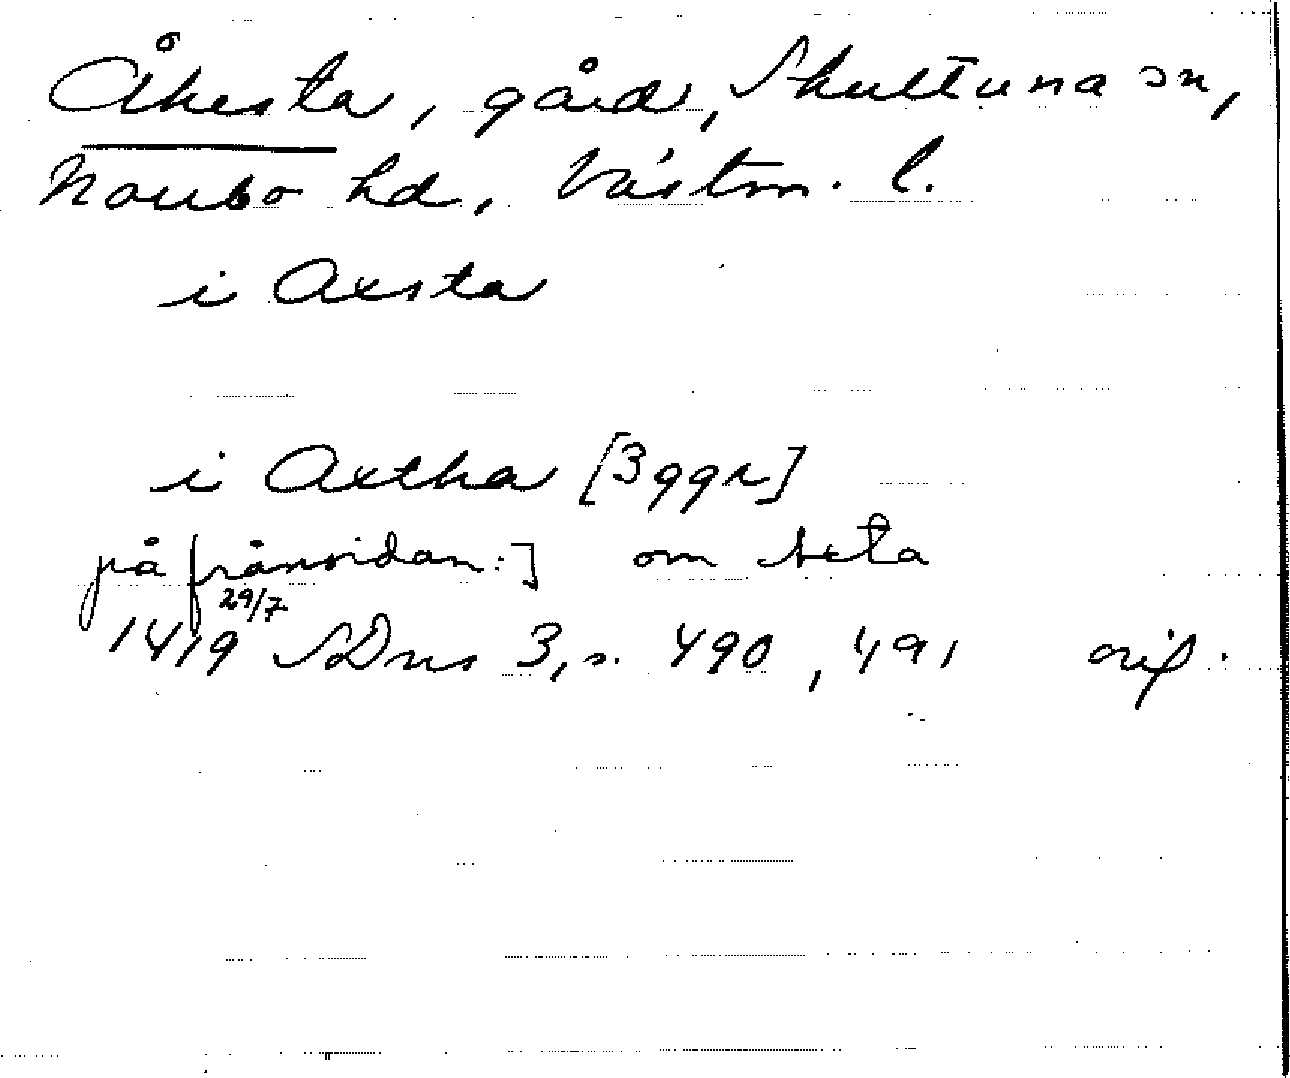 Åkesta, gård, Skultuna sn,
Norrbo hd, Västm. l.
i Axsta
i Axtha [3 ggr]
på frånsidan:] om
29/7
1419 SDns 3, s. 490, 491 orig.